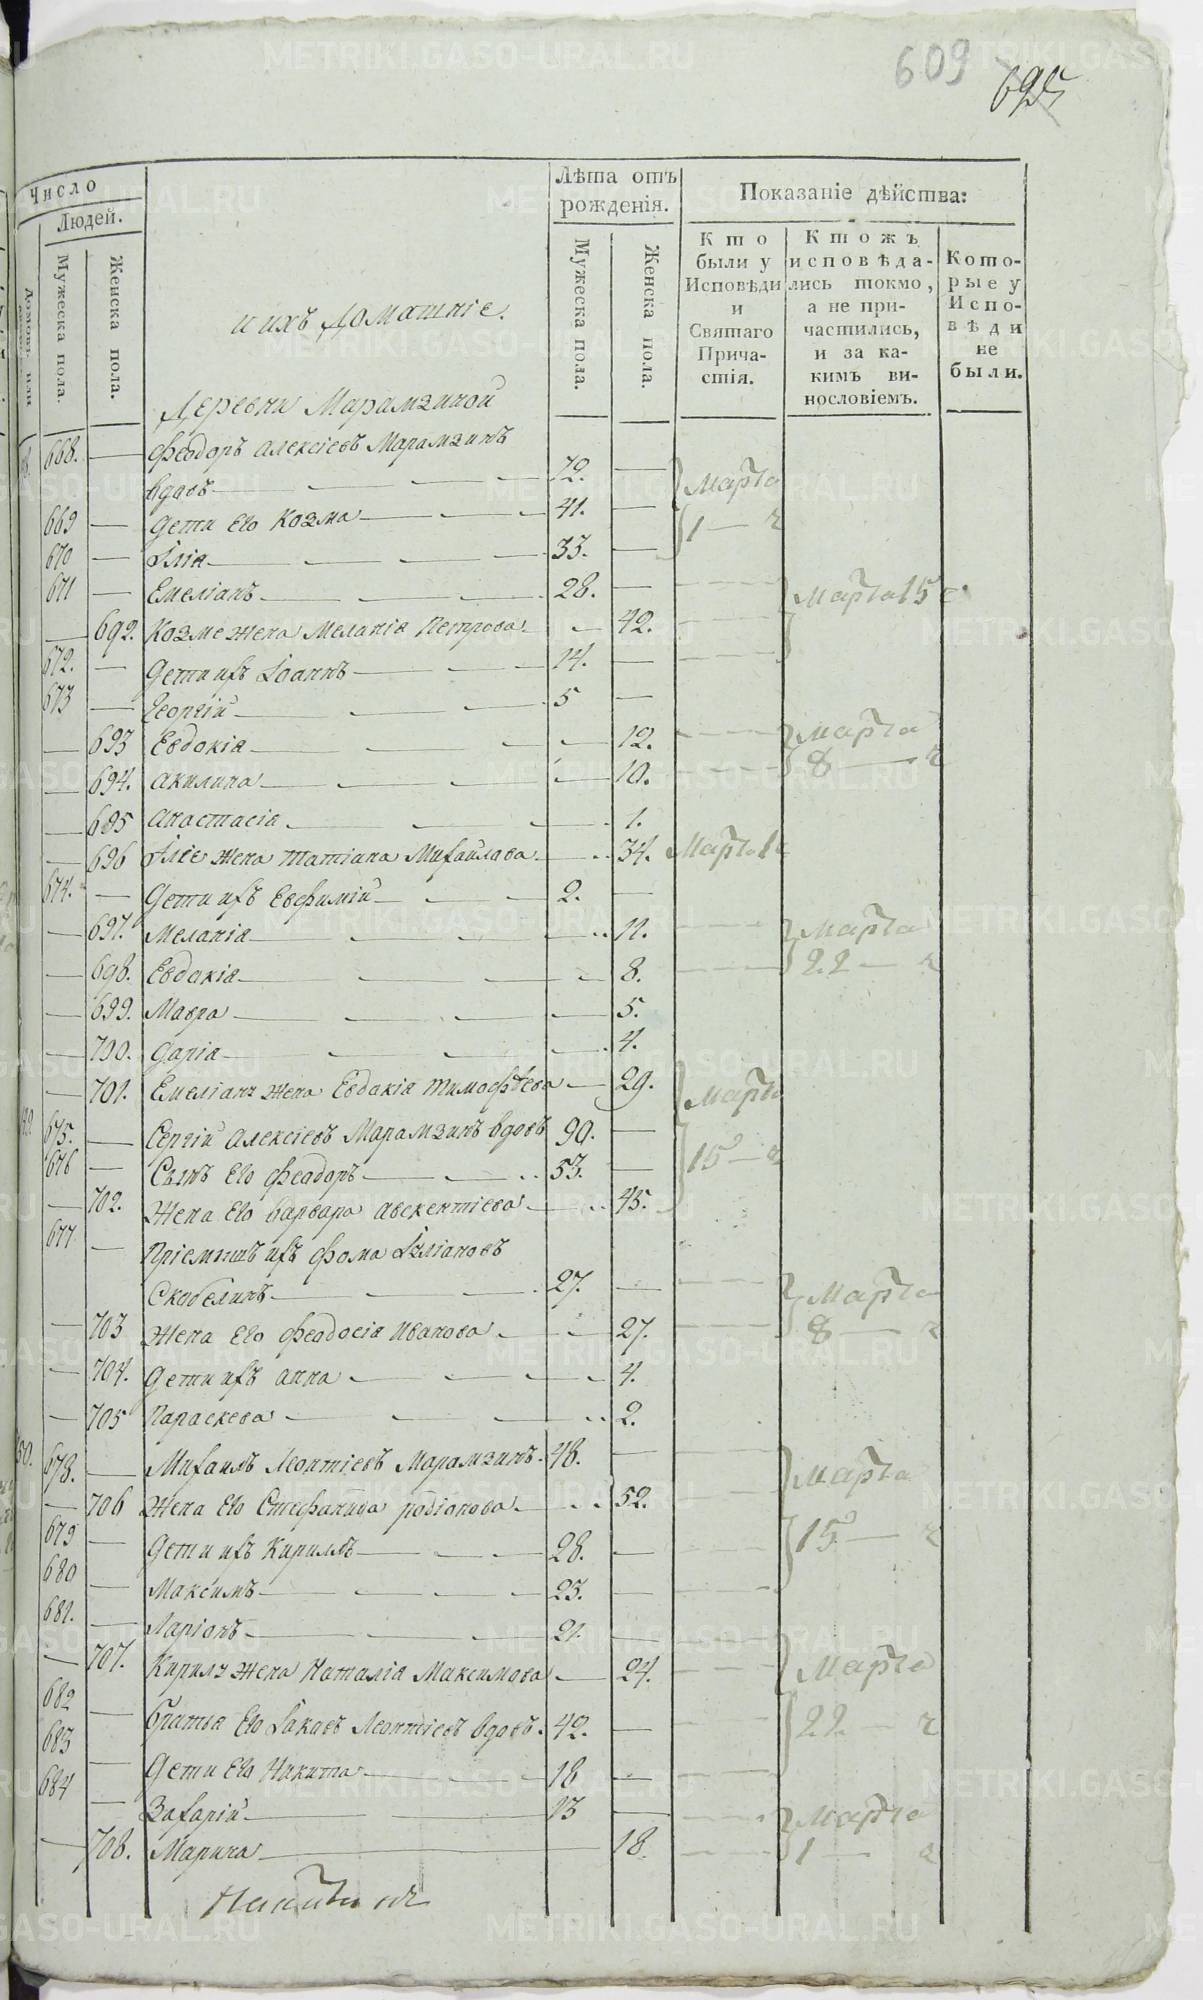 609
695
Число
Людей.
Домовъ или
Мужеска пола.
Женска пола.
и ихъ домашніе.
Лѣта отъ
рожденія.
Мужеска пола.
Женска пола.
Показаніе дѣйства:
Кто
были у
Исповѣди
и
Святаго
Прича-
стія.
Ктожъ
исповѣда-
лись токмо,
а не при-
частились,
и за ка-
кимъ ви-
нословіемъ.
Кото-
рые у
Испо-
вѣди
не
были.
Деревни Марамзиной
668. — Феодоръ Алексіевъ Марамзинъ
вдовъ — 72. — Марта
669 — Дети Его Козма — 41. — 1 — ч
670 — Иліа — 33. —
671 — Емеліанъ — 28. — Марта 15 ч
— 692. Козме жена Меланіа Петрова — 42.
672. — Дети ихъ Іоаннъ — 14. —
673 — Георгій — 5 —
— 693 Евдокіа — 12. Марта
— 694. Акилина — 10. 8 — ч
— 695 Анастасіа — 1.
— 696 Иліе жена Татіана Михайлова — 34. Марта 1 ч
674. — Дети ихъ Евфимій — 2. —
— 697. Меланіа — 11. Марта
— 698. Евдакіа — 8. 22 — ч
— 699. Мавра — 5.
— 700. Даріа — 4.
— 701. Емеліану жена Евдакіа Тимофѣева — 29. Марта
675. — Сергій Алексіевъ Марамзинъ вдовъ 90. —
676 — Сынъ Его Феодоръ — 53. — 15 — ч
— 702. Жена Его Варвара Авксентіева — 45.
677 — Пріемышъ ихъ Фома Иуліановъ
Скобелинъ — 27. — Марта
— 703 Жена Его Феодосіа Иванова — 27. 8 — ч
— 704. Дети ихъ Анна — 4.
— 705 Параскева — 2.
678. — Михаилъ Леонтіевъ Марамзинъ. 48. — Марта
— 706 Жена Его Стефанида Родіонова — 52.
679 — Дети ихъ Кириллъ — 28. — 15 — ч
680 — Максимъ — 23. —
681. — Ларіонъ — 21. —
— 707. Кирилу жена Наталіа Максимова — 24. Марта
682 — Братъя Его Іаковъ Леонтіевъ вдовъ. 42. — 22. — ч
683 — Дети Его Никита — 18 —
684 — Захарій — 13 — Марта
— 708. Марина — 18. 1 — ч